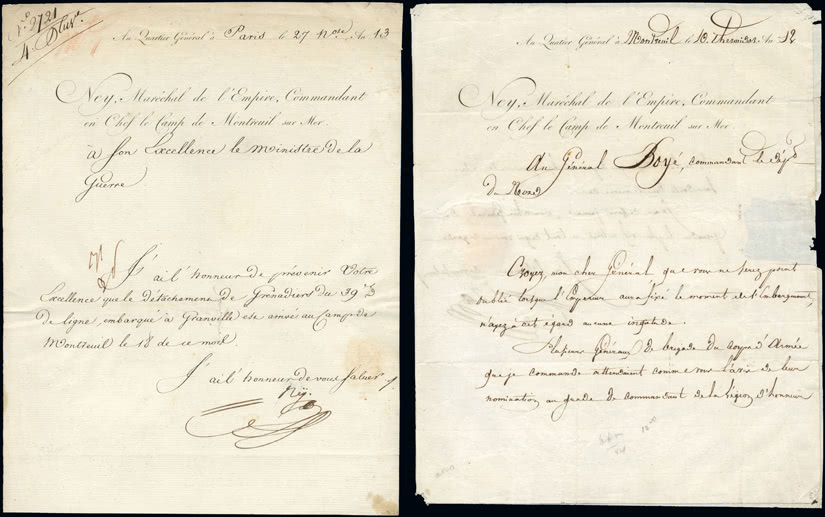 N.o 2721
4. Pluv.e
Au Quartier Général à Paris le 27 Nose An 13
Ney, Maréchal de l'Empire, Commandant
en Chef le Camp de Montreuil sur Mer.
à Son Excellence le Ministre de la
Guerre
J'ai l'honneur de prévenir Votre
Excellence que le détachement de Grenadiers du 39e
de ligne, embarqué à Granville est arrivé au Camp de
Montreuil le 18 de ce mois
J'ai l'honneur de vous saluer
Ney
Au Quartier Général à Montreuil le 10 Thermidor An 12
Ney, Maréchal de l'Empire, Commandant
en Chef le Camp de Montreuil sur Mer.
Au Général Boyé, commandant le dépt
du Nord
Croyez, mon cher Général que vous ne serez point
oublié lorsque l'Empereur aura fixé le moment de l'Embarquement,
n'ayez à cet égard aucune inquiétude.
Plusieurs Généraux de brigade du corps d'Armée
que je commande attendent comme vous l'avis de leur
nomination au grade de commandant de la légion d'honneur